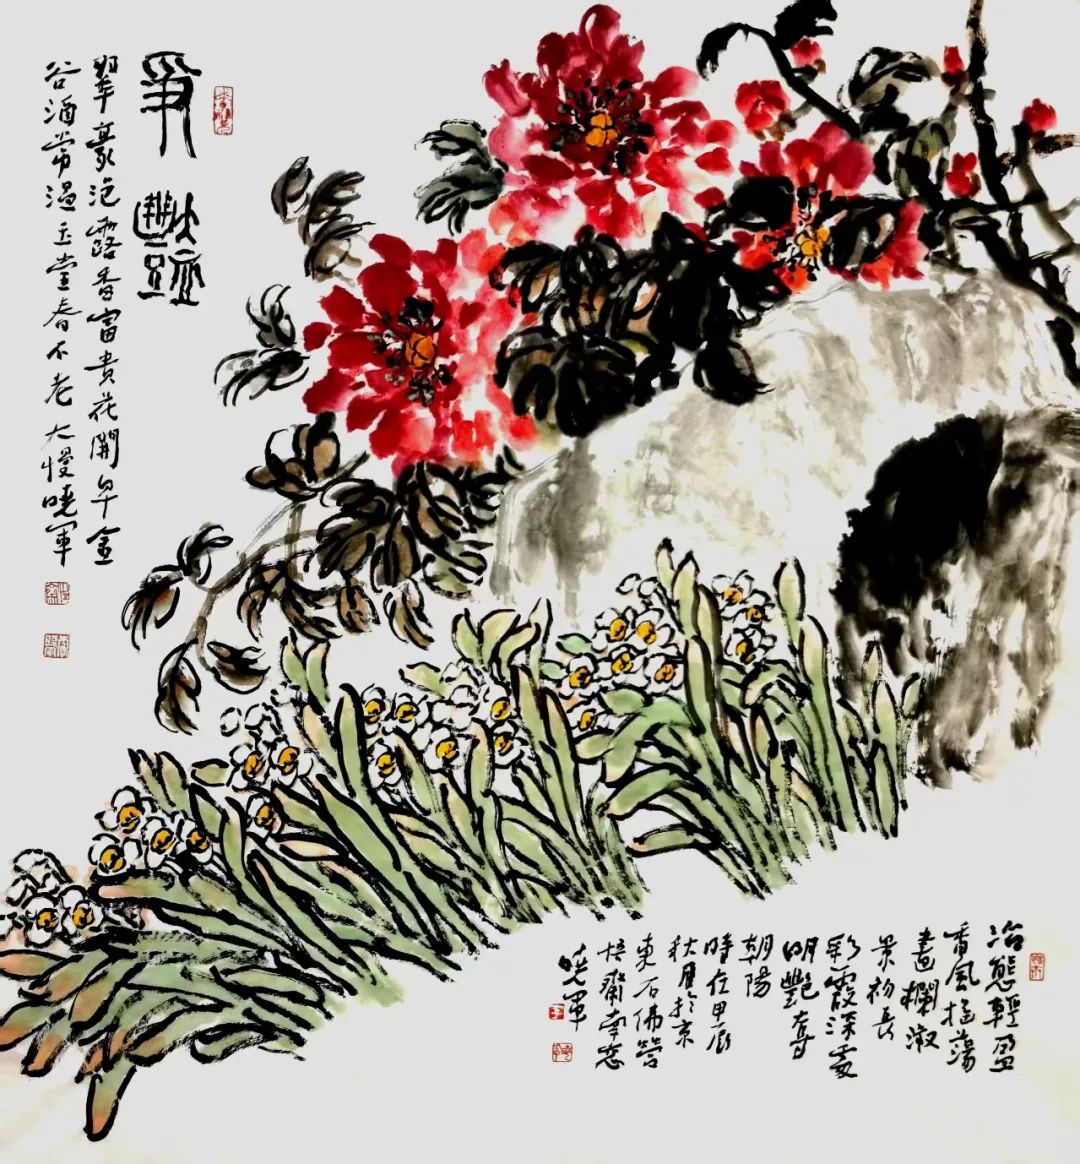 爭豔
翠豪泡露香富貴花開早金
谷酒常溫玉堂春不老大慢曉軍
冶態輕盈
香風搖蕩
畫欄淑
景初長
彩霞深處
明艷奪
朝陽
時在甲辰
秋月於京
東石佛營
悟齋南窓
曉軍